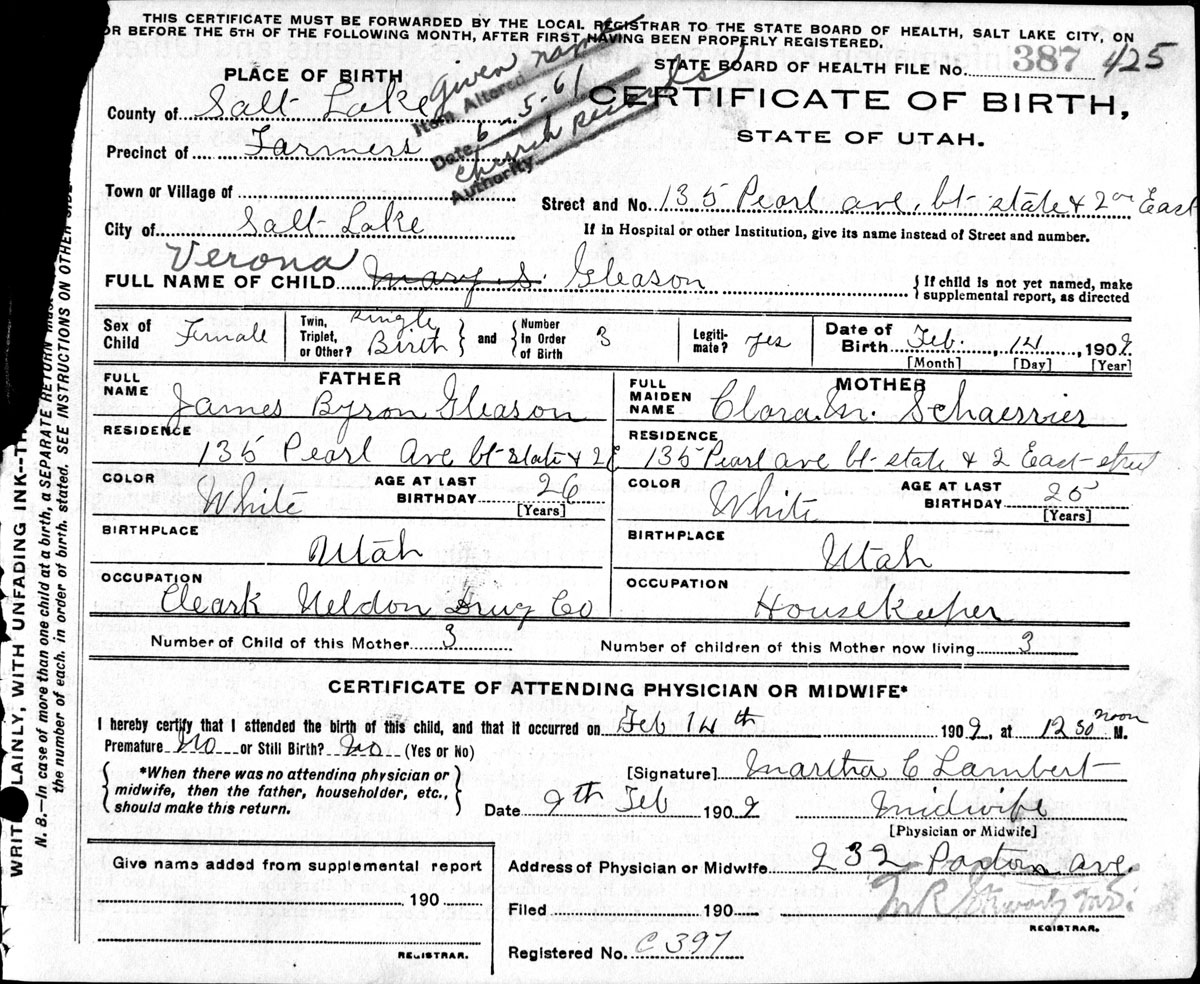 THIS CERTIFICATE MUST BE FORWARDED BY THE LOCAL REGISTRAR TO THE STATE BOARD OF HEALTH, SALT LAKE CITY, ON
OR BEFORE THE 5TH OF THE FOLLOWING MONTH, AFTER FIRST HAVING BEEN PROPERLY REGISTERED.
STATE BOARD OF HEALTH FILE NO. 387 425
PLACE OF BIRTH
Given name
Item Altered
Date 6-5-61
Church records
Authority
CERTIFICATE OF BIRTH,
STATE OF UTAH.
County of Salt Lake
Precinct of Farmers
Town or Village of
Street and No. 135 Pearl ave. bt- state & 2nd East
City of Salt Lake
If in Hospital or other Institution, give its name instead of Street and number.
Verona
FULL NAME OF CHILD Mary S. Gleason
{If child is not yet named, make supplemental report, as directed
Sex of Child Female
Twin, Triplet, or Other? Single Birth } and { Number In Order of Birth 3
Legitimate? yes
Date of Birth Feb. , 14 , 1909.
[Month] [Day] [Year]
FATHER
FULL NAME James Byron Gleason
MOTHER
FULL MAIDEN NAME Clara M.
RESIDENCE
135 Pearl Ave bt-state & 2 E
RESIDENCE
135 Pearl ave bt-state & 2 East-street
COLOR White
AGE AT LAST BIRTHDAY 26
[Years]
COLOR White
AGE AT LAST BIRTHDAY 25
[Years]
BIRTHPLACE
Utah
BIRTHPLACE
Utah
OCCUPATION
Cleark Neldon Drug Co
OCCUPATION
Housekeeper
Number of Child of this Mother 3
Number of children of this Mother now living 3
CERTIFICATE OF ATTENDING PHYSICIAN OR MIDWIFE*
I hereby certify that I attended the birth of this child, and that it occurred on Feb 14th 1909, at 12 30 noon M.
Premature No or Still Birth? No (Yes or No)
{ *When there was no attending physician or midwife, then the father, householder, etc., should make this return. }
[Signature] Martha C Lambert
Date 9th Feb 1909
Midwife
[Physician or Midwife]
Give name added from supplemental report
190
REGISTRAR.
Address of Physician or Midwife 232 Paxton ave.
Filed 190
REGISTRAR.
Registered No. C 397
WRITE PLAINLY, WITH UNFADING INK--TH
N. B.—In case of more than one child at a birth, a SEPARATE RETURN must
the number of each, in order of birth, stated. SEE INSTRUCTIONS ON OTHER SIDE